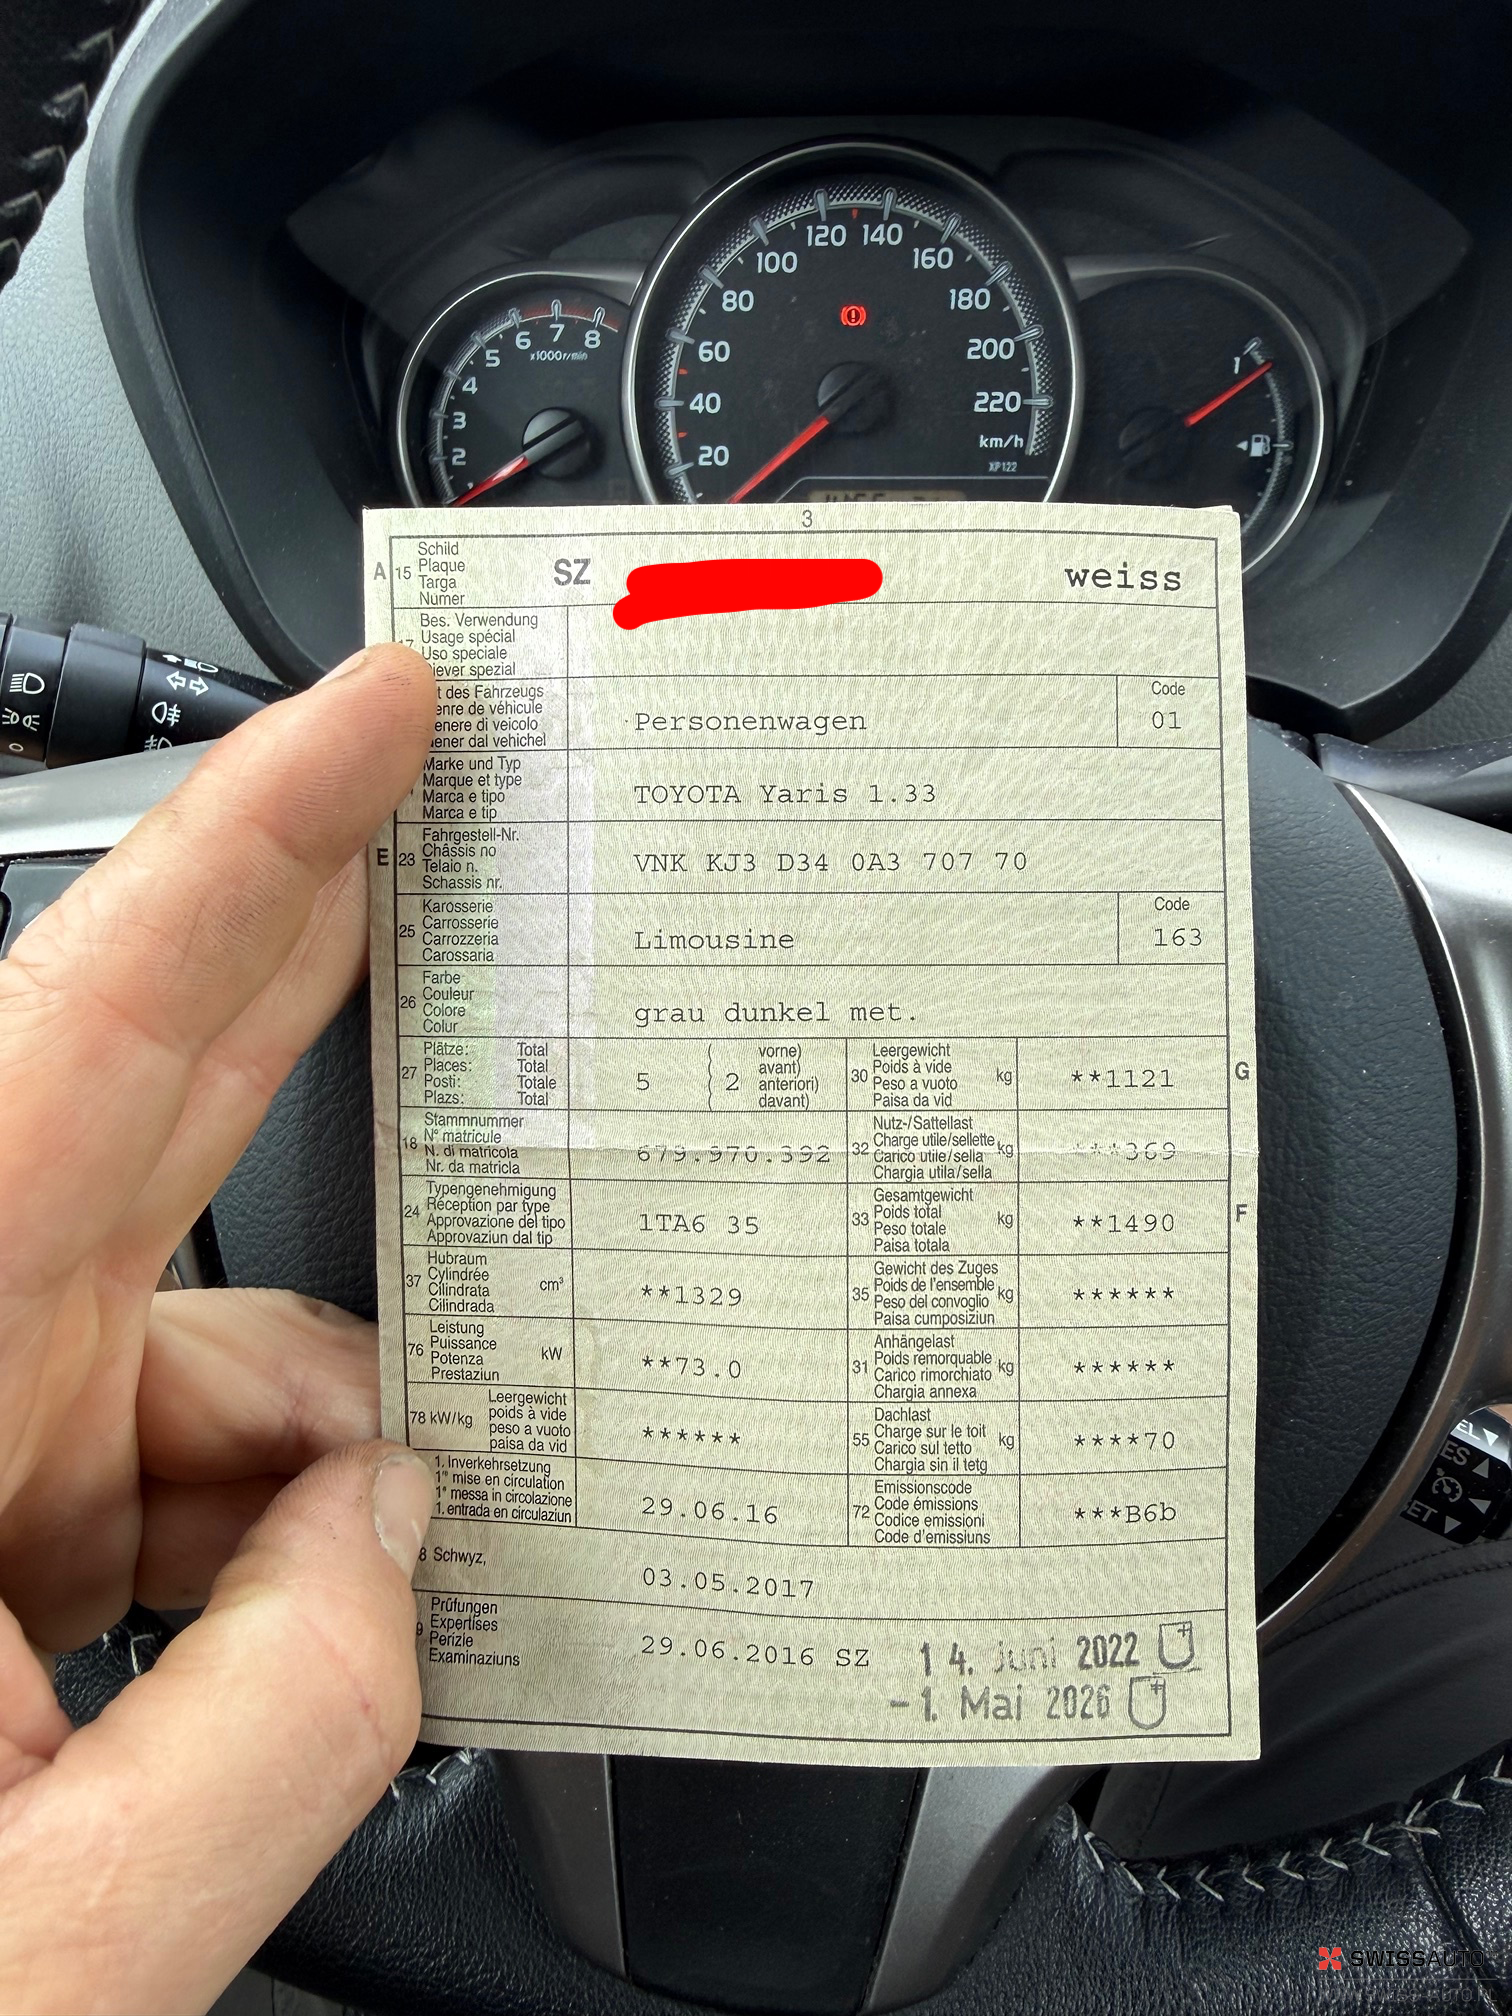 120 140
100 160
80 180
60 200
40 220
20 km/h
XP122
8
7
6
5
x1000r/min
4
3
2
1
1
3
A 15 Schild
Plaque
Targa
Numer
SZ weiss
Bes. Verwendung
Usage spécial
Uso speciale
spezial
des Fahrzeugs
de véhicule
di veicolo
dal vehichel
Personenwagen
Code
01
Marke und Typ
Marque et type
Marca e tipo
Marca e tip
TOYOTA Yaris 1.33
E 23 Fahrgestell-Nr.
Châssis no
Telaio n.
Schassis nr.
VNK KJ3 D34 0A3 707 70
25 Karosserie
Carrosserie
Carrozzeria
Carossaria
Limousine
Code
163
26 Farbe
Couleur
Colore
Colur
grau dunkel met.
27 Plätze: Total
Places: Total
Posti: Totale
Plazs: Total
5 ( 2 vorne)
avant)
anteriori)
davant)
30 Leergewicht
Poids à vide
Peso a vuoto
Paisa da vid
kg **1121 G
18 Stammnummer
N° matricule
N. di matricola
Nr. da matricla
679.970.392
32 Nutz-/Sattellast
Charge utile/sellette
Carico utile/sella
Chargia utila/sella
kg ***369
24 Typengenehmigung
Réception par type
Approvazione del tipo
Approvaziun dal tip
1TA6 35
33 Gesamtgewicht
Poids total
Peso totale
Paisa totala
kg **1490 F
37 Hubraum
Cylindrée
Cilindrata
Cilindrada
cm³ **1329
35 Gewicht des Zuges
Poids de l'ensemble
Peso del convoglio
Paisa cumposiziun
kg ******
76 Leistung
Puissance
Potenza
Prestaziun
kW **73.0
31 Anhängelast
Poids remorquable
Carico rimorchiato
Chargia annexa
kg ******
78 kW/kg Leergewicht
poids à vide
peso a vuoto
paisa da vid
******
55 Dachlast
Charge sur le toit
Carico sul tetto
Chargia sin il tetg
kg ****70
1. Inverkehrsetzung
1re mise en circulation
1a messa in circolazione
1. entrada en circulaziun
29.06.16
72 Emissionscode
Code émissions
Codice emissioni
Code d'emissiuns
***B6b
8 Schwyz,
03.05.2017
9 Prüfungen
Expertises
Perizie
Examinaziuns
29.06.2016 SZ
14. Juni 2022
-1. Mai 2026
SWISSAUTO